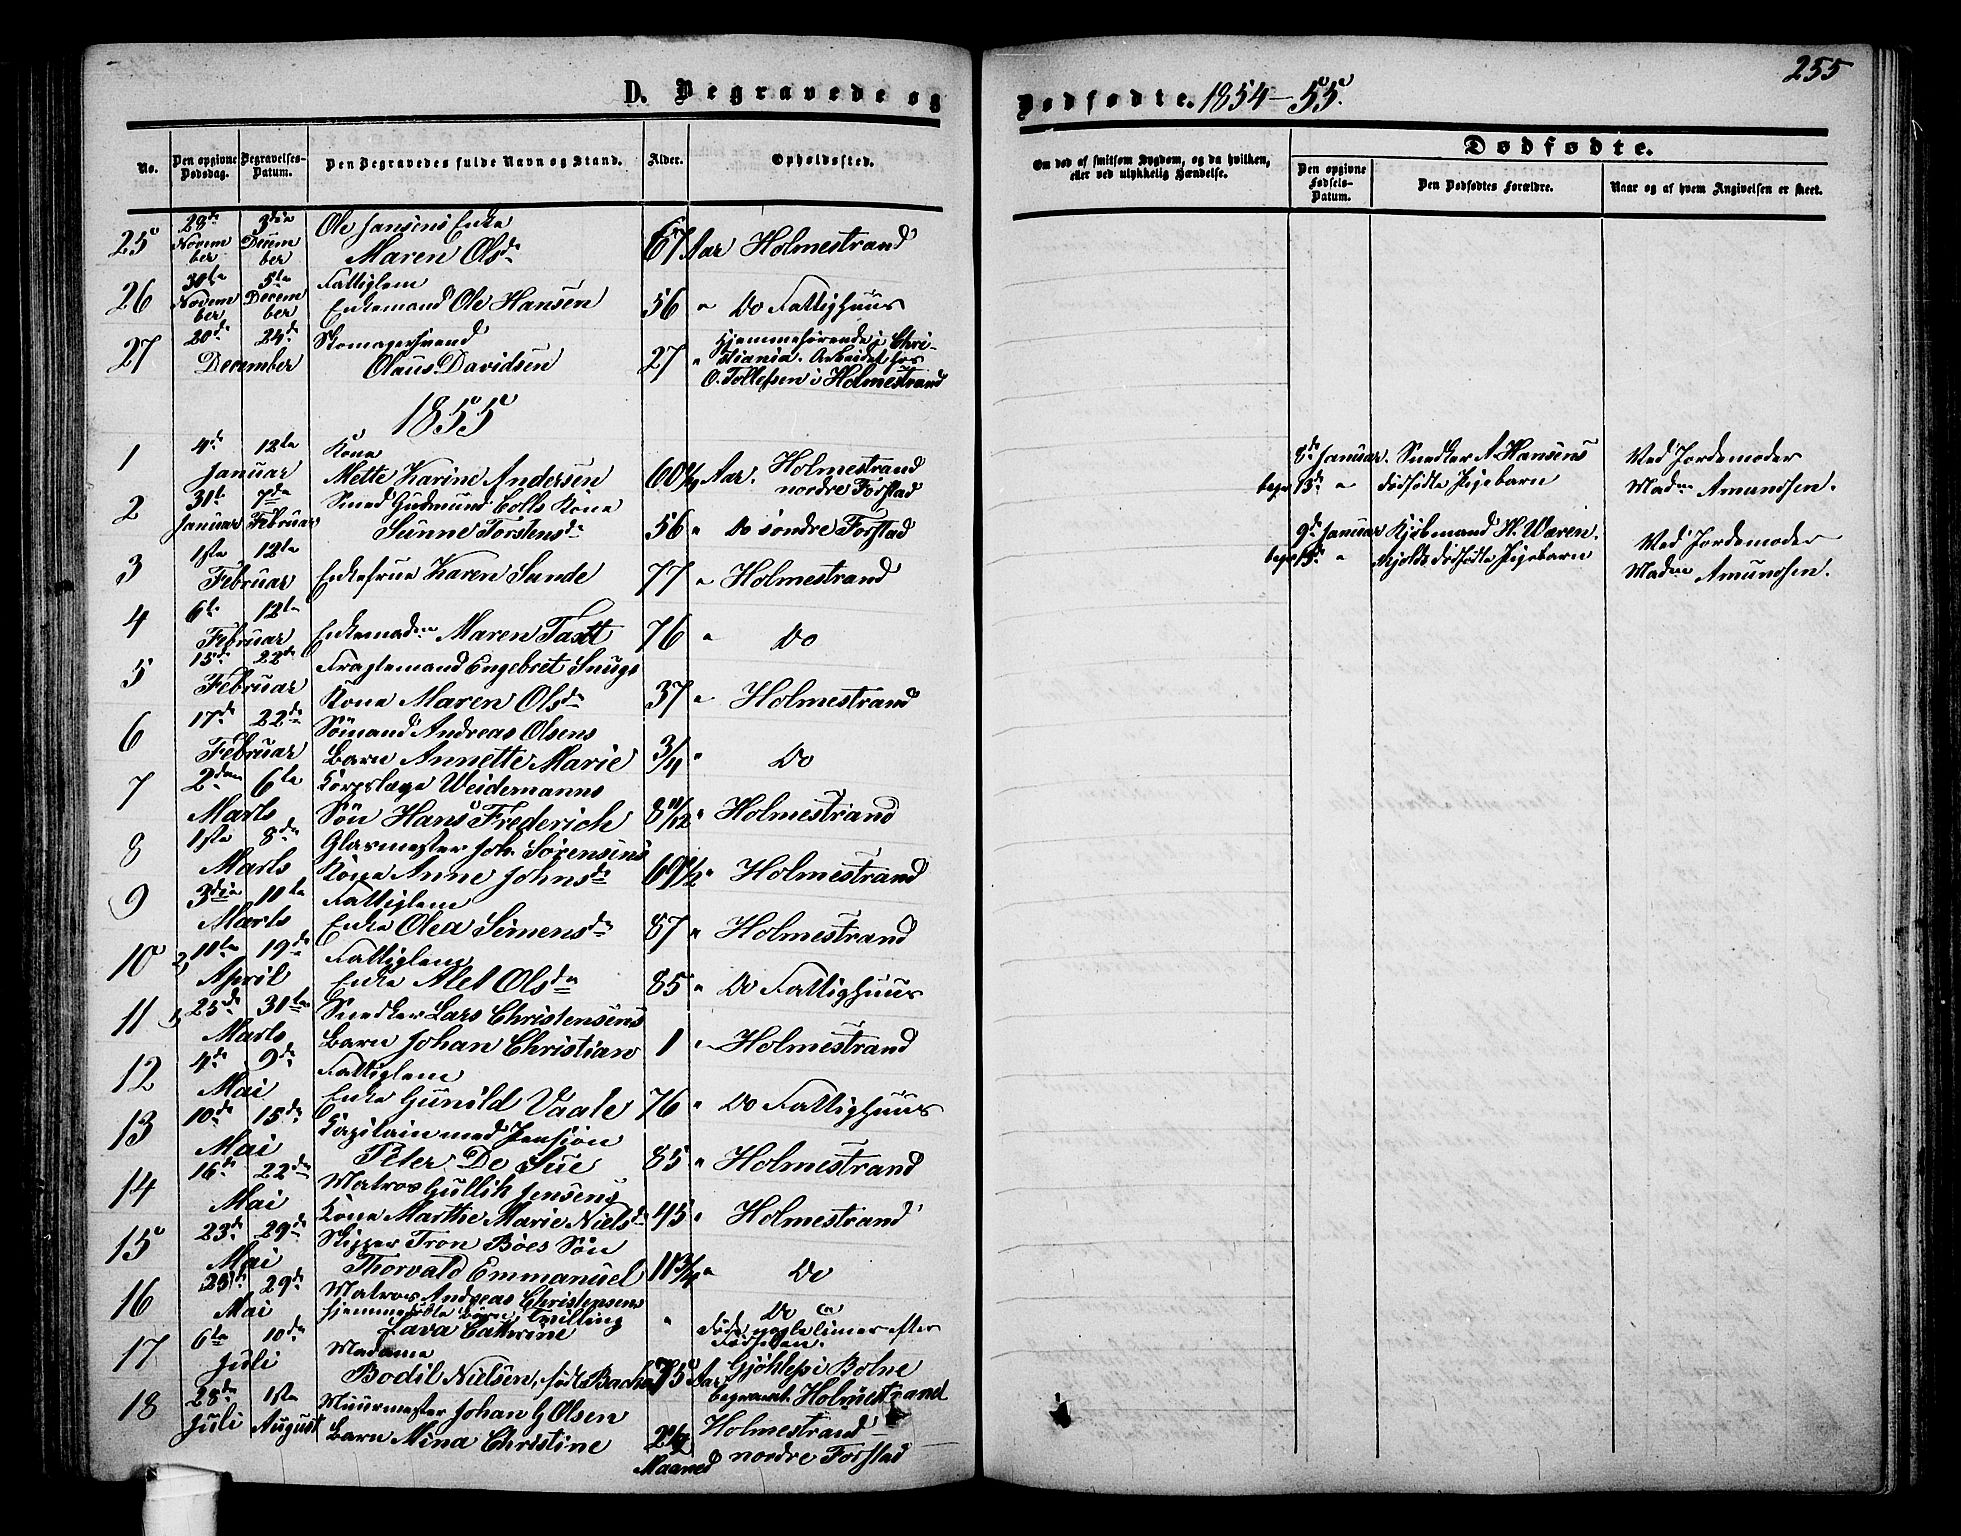 D. Begravede og
Dødfødte. 1854-55.
255
No.
Den opgivne Dødsdag.
Begravelses-Datum.
Den Begravedes fulde Navn og Stand.
Alder.
Opholdssted.
Om død af smitsom Sygdom, og da hvilken,
eller ved ulykkelig Hændelse.
Dødfødte.
Den opgivne Fødsels-Datum.
Den Dødfødtes Forældre.
Naar og af hvem Angivelsen er skeet.
25 29de November 3die December Ole Jansens Enke
Maren Olsdr 67 Aar Holmestrand
26 30te November 5te December Fattiglem
Enkemand Ole Hansen 56 " Do Fattighuus
27 20de 24de December Skomagersvend
Olaus Davidsen 27 " Hjemmehørende i Christiania. Arbeidet hos
O. Tollefsen i Holmestrand
1855
1 4de 12te Januar Kone
Mette Karine Andersen 60 Aar. Holmestrand
nordre Forstad
2 31te Januar 7de Februar Smed Gudmund Colls Kone
Sünne Torstensdr 56 " Do søndre Forstad
3 1ste 12te Februar Enkefrue Karen Sunde 77 " Holmestrand
4 6te 12te Februar Enkemadme Maren Taxt 76 " Do
5 15de 22de Februar Fragtemand Engebret Snugs
Kone Maren Olsdr 37 " Holmestrand
6 17de 22de Februar Sömand Andreas Olsens
Barn Annette Marie 3/4 " Do
7 2den 6te Marts Korpslæge Weidemanns
Sön Hans Frederich 8 11/12 " Holmestrand
8 1ste 8de Marts Glasmester Joh. Sörensens
Kone Anne Johnsdr 69 1/2 " Holmestrand
9 3die 10te Marts Fattiglem
Enke Olea Simensdr 87 " Holmestrand
10 2) 11te 19de April Fattiglem
Enke Alet Olsdr 85 " Do Fattighuus
11 1) 25de 31te Marts Snedker Lars Christensens
Barn Johan Christian 1 " Holmestrand
12 4de 9de Mai Fattiglem
Enke Gunild Vaale 76 " Do Fattighuus
13 10de 15de Mai Kapitain med Pension
Peter De Süe 85 " Holmestrand
14 16de 22de Mai Matros Gullik Jensens
Kone Marthe Marie Nielsdr 45 " Holmestrand
15 23de 29de Mai Skipper Tron Böes Sön
Thorvald Emmanuel 10 3/4 " Do
16 29de Mai Matros Andreas Christensens
hjemmedöbte Barn Tvilling
Lava Cathrine " Do
Døde nogle timer efter
Fødselen.
17 6te 10de Juli Madame
Bodil Nielsen, fød Bache 75 Aar i Botne
begravet Holmestrand
18 28de Juli 1ste August Muurmester Johan G Olsen
Barn Mina Christine 2 1/2 Maaned Holmestrand
nordre Forstad
8de Januar. Snedker A Hansens Ved Jordemoder
begr 15de " dødfødte Pigebarn Madme Amundsen.
9de Januar Kjøbmand H. Waren Ved Jordemoder
begr 15de " dødfødte Pigebarn Madme Amundsen.